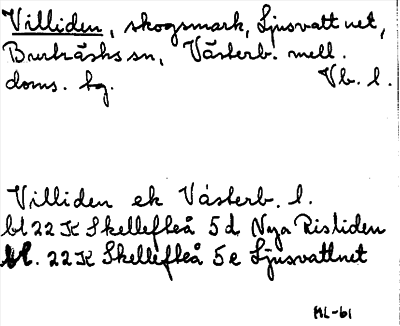 Villiden, skogsmark, Ljusvattnet,
Burträsks sn, Västerb. mell.
doms. hg. Vb. l.
Villiden ek Västerb. l.
bl 22 K Skellefteå 5 d Nya Risliden
bl. 22 K Skellefteå 5 e Ljusvattnet
HL-61